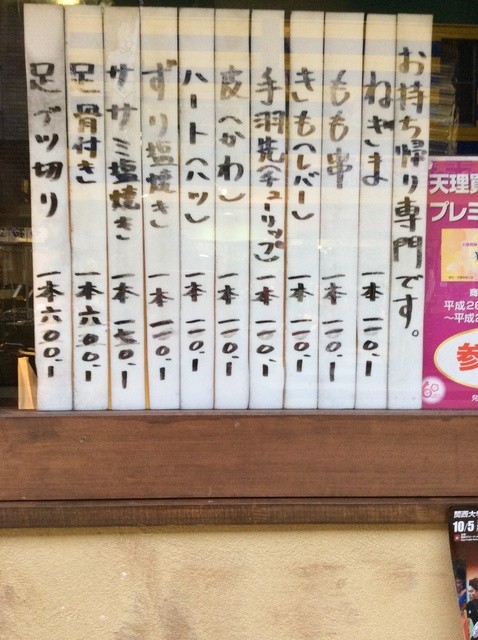 お持ち帰り専門です。
ねぎま 一本 一二〇、ー
もも串 一本 一二〇、ー
きも(レバー) 一本 一二〇、ー
手羽先(チューリップ) 一本 一二〇、ー
皮(かわ) 一本 一二〇、ー
ハート(ハツ) 一本 一二〇、ー
ずり塩焼き 一本 一二〇、ー
ササミ塩焼き 一本 一五〇、ー
足骨付き 一本 六〇〇、ー
足ブツ切り 一本 六〇〇、ー
天理
プレミ
平成2
〜平成2
参
10/5